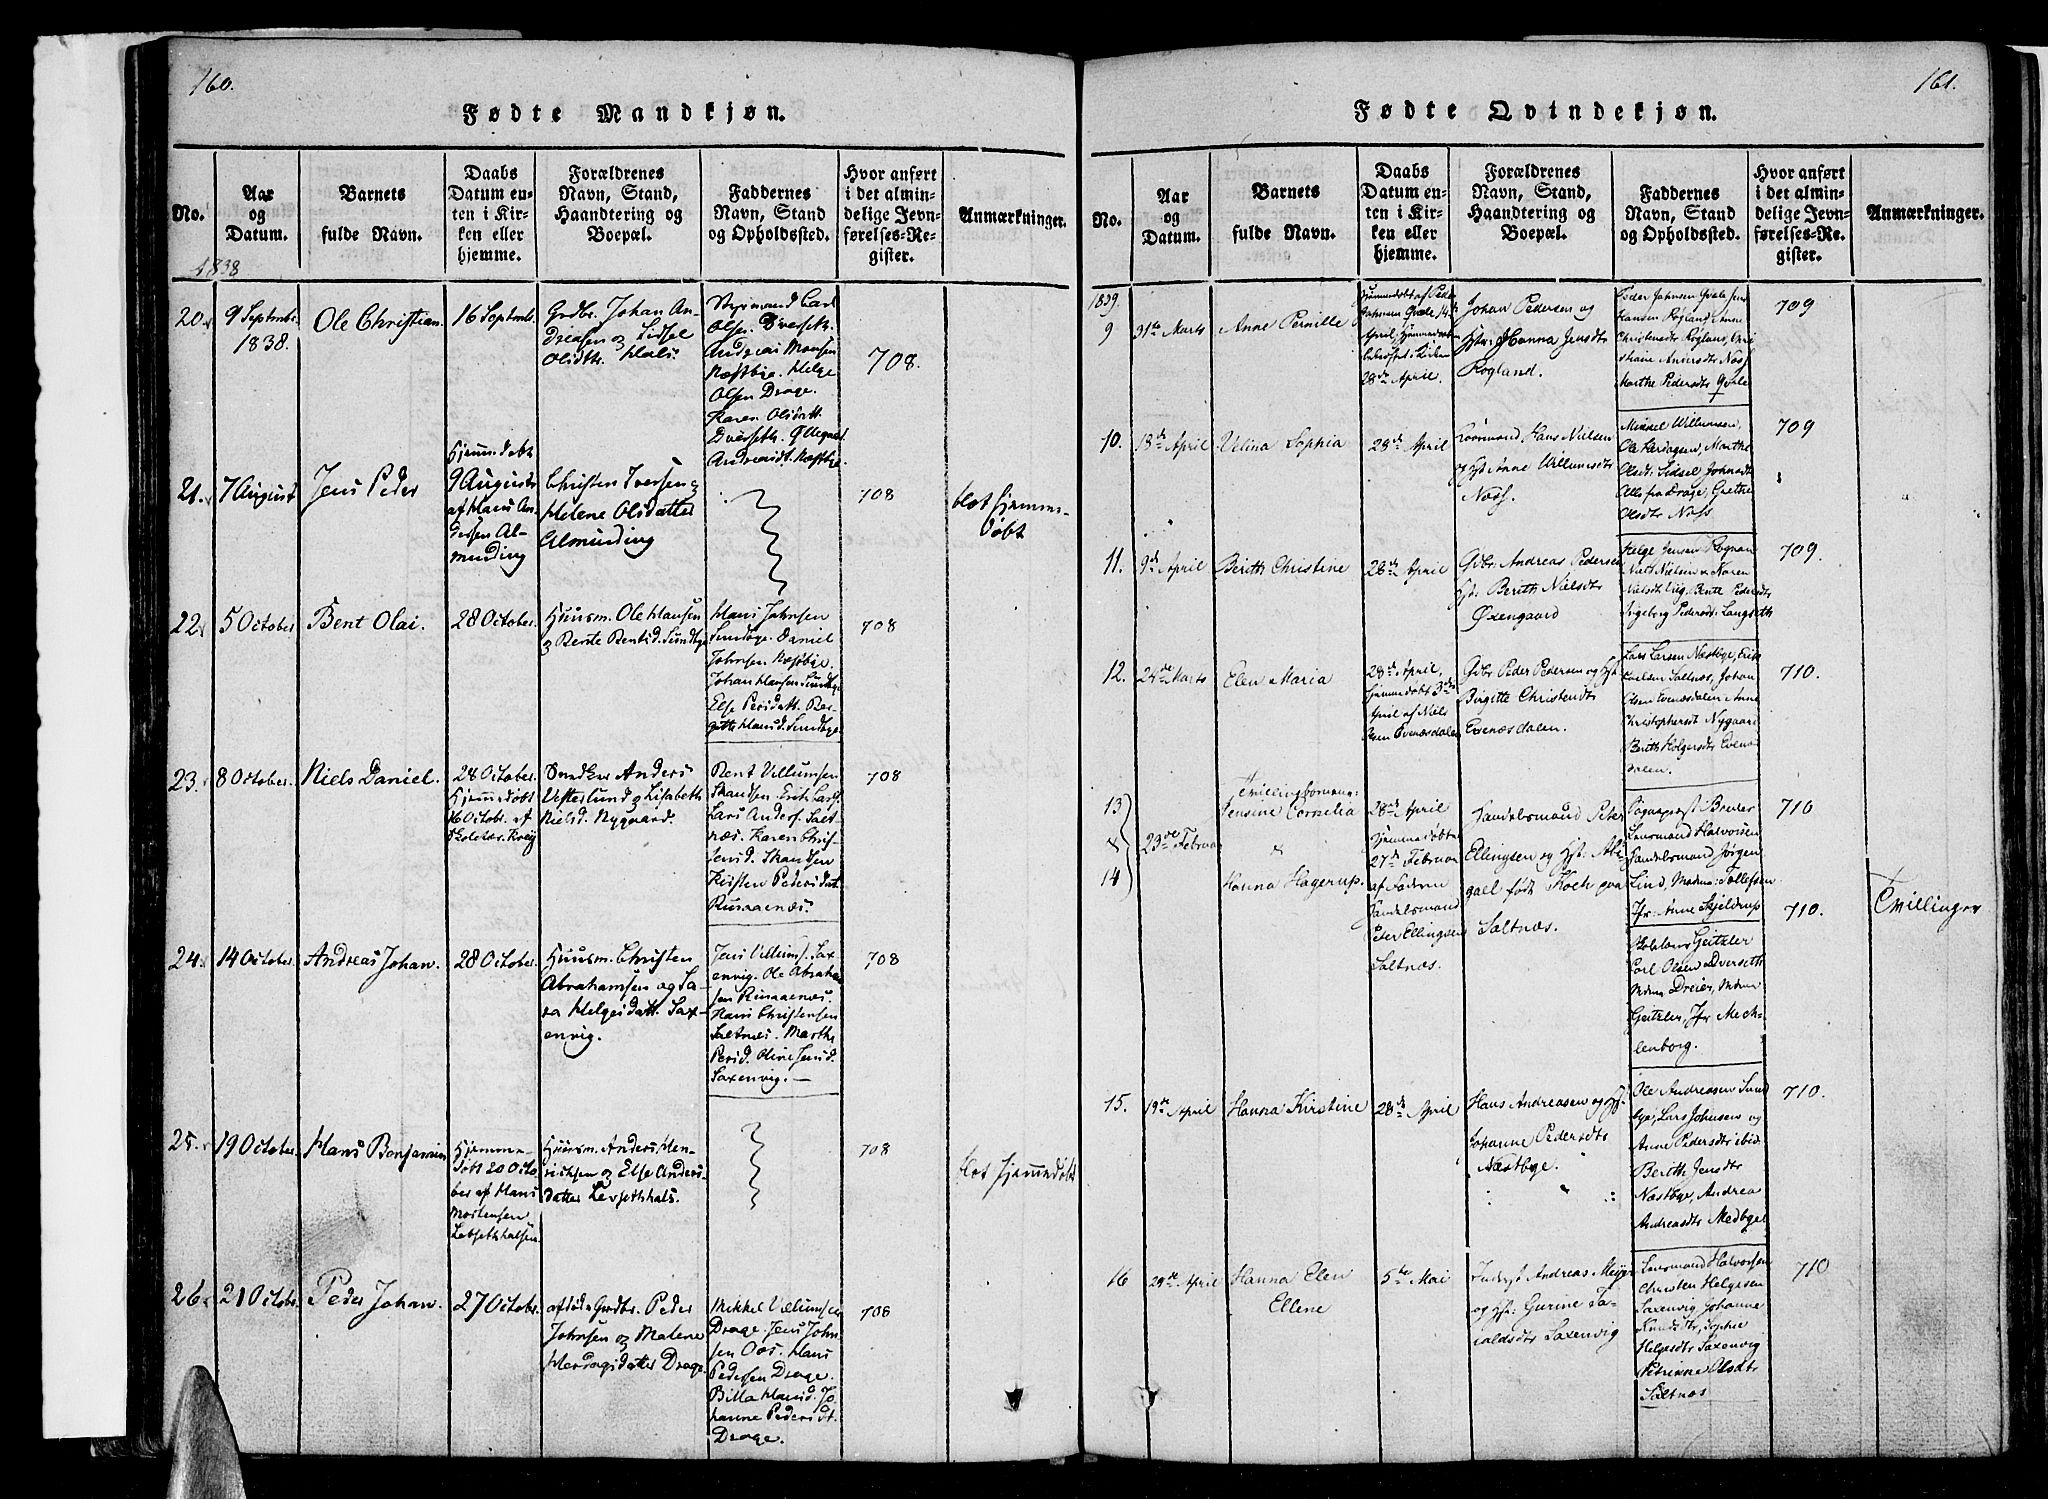 160.
Fødte Mandkjøn.
No.
Aar
og
Datum.
Barnets
fulde Navn.
Daabs
Datum en-
ten i Kir-
ken eller
hjemme.
Forældrenes
Navn, Stand,
Haandtering og
Boepæl.
Faddernes
Navn, Stand
og Opholdssted.
Hvor anført
i det almin-
delige Jevn-
førelses-Re-
gister.
Anmærkninger.
1838
20.
9 Septembr.
1838.
Ole Christian
16 Septembr.
Grdbr. Johan An-
dreasen og Sidsel
Olsdtr. Hals
Carl
Olsen Dverseth.
Andreas Monsen
Næstbye. Helge
Olsen Drage.
Karen Olsdatt.
Dverseth.
Andreasdt. Næstbye
708.
21.
7 August
Jens Peder
Hjemmedøbt
9 August
af Hans An-
dersen Al-
munding
Christen Iversen og
Helene Olsdatter
Almunding
708
blot hjemme-
døbt
22.
5 October
Bent Olai.
28 October.
Huusm. Ole Hansen
og Berte Bentsd. Sundbye
Hans Johnsen
Sundbye. Daniel
Johnsen Næstbye.
Johan Hansen Sundbye
Else Persdatt. Ber-
gethe Hansd. Sundbye
708
23.
8 October.
Niels Daniel.
28 October.
Hjemmedøbt
16 Octobr. af
Skoleholder
Anders
Vesterlund og Lisabeth
Nielsd. Nygaard.
Bent Villumsen
Skandsen. Erik Larss.
Lars Anders. Salt-
næs. Karen Chris-
tensd. Skandsen
Kirsten Pedersdat.
Rusaaenæs.
708
24.
14 October.
Andreas Johan.
28 October.
Huusm. Christen
Abrahamsen og Sa-
ra Helgesdatt. Sax-
envig.
Jens Villums. Sax
envig. Ole Abraham
sen Rusaaenæs.
Hans Christensen
Saltnæs. Marthe
Persd. Oline Jensd.
Saxenvig.—
708
25.
19 October.
Hans Benjamin
Hjemme-
døbt 20 Octo
ber af Hans
Mortensen
Huusm. Anders Hen-
richsen og Else Anders-
datter Levsethhals.
708
blot hjemmedøbt
26.
21 Octobr.
Peder Johan.
27 Octobr.
afdøde Grdbr. Peder
Johnsen og Malene
Hardagsdatter Drage.
Mikkel Villumsen
Drage. Jens John-
sen Oos. Hans
Pedersen Drage.
Billa Hansd. Jo-
hanne Pedersdt.
Drage.
708
161.
Fødte Qvindekjøn.
No.
Aar
og
Datum.
Barnets
fulde Navn.
Daabs
Datum en-
ten i Kir-
ken eller
hjemme.
Forældrenes
Navn, Stand,
Haandtering og
Boepæl.
Faddernes
Navn, Stand
og Opholdssted.
Hvor anført
i det almin-
delige Jevn-
førelses-Re-
gister.
Anmærkninger.
1839.
9
31te Marts
Anne Pernille
Hjemmedøbt af Peder
Johnsen Qvale 14de
April, Hjemmedaaben
i Kirken
28de April.
Johan Pedersen og
Hstr: Hanna Jensdtr
Rogland.
Peder Johnsen Qvale, Jens
Hansen Rogland, Anne
Christensdtr Rogland,
Marthe Pedersdtr Qvale
709
10.
18de April
Velina Sophia
28de April
Hans Nielsen
og Hst Anne Villumsdtr
Næss.
Mikkel Willumsen,
Ole Hardagsen, Marthe
Olsdtr Sidsel Johnsdtr
Alle fra Drage, Grethe
Olsdtr Næss
709
11.
9de April
Berith Christine
28de April
Gdbr. Andreas Pedersen
Hst. Berith Nielsdtr
Øxengaard
Helge Jensen Rognan
Niels Nielsen
Nielsdtr Vig, Bente Pedersdtr
Ingeborg Pedersdtr Langseth
709.
12.
24de Marts
Elen Maria
28de April,
Hjemmedøbt 3de
April af Niels
Olsen Evenesdalen
Gdbr. Peder Pedersen og Hst
Birgitte Christensdtr
Evenæsdalen.
Lars Larsen Næstbye, Erik
Saltnes, Johan
Olsen Evenesdalen Anne
Christophersdtr Nygaard
Berith Holgersdtr Evenæs-
dalen.
710.
13
&
14
23de Februar
Tvillingbørnene:
Jensine Cornelia
&
Hanna Hagerup.
28de April
Hjemmedøbte
27de Februar
af Faderen
Handelsmand
Peter Ellingsen
Saltnæs.
Handelsmand Peter
Ellingsen og Hst: Abi-
gael født Koch paa
Saltnæs.
Sogneprest
Lensmand Halvorsen
Handelsmand Jørgen
Lind, Madme: Tollefsen
Jfr: Anne Skjeldrup
Geitzler
Carl Olsen Dverseth
Madme Dreier, Madme
Geitzler, Jfr Mech-
lenborg.
710
710.
Tvillinger
15.
19de April
Hanna Kirstine
28de April
Hans Andreasen og Hst:
Johanne Pedersdtr
Næstbye.
Ole Andreasen Sund
bye, Lars Johnsen og
Anne Pedersdtr ibid.
Berith Jensdtr
Næstbye, Andrea
Andreasdtr Medbye
710.
16
29de April
Hanna Elen
Ellene
5te Mai
Inderst Andreas Meyer
og Hst: Gurine Ja-
Saxenvig
Lensmand Halvorsen
Christen Helgesen
Saxenvig, Johanne
Knudsdtr, Sophie
Helgesdtr Saxenvig
Petrinne Olsdtr
Saltnæs
710